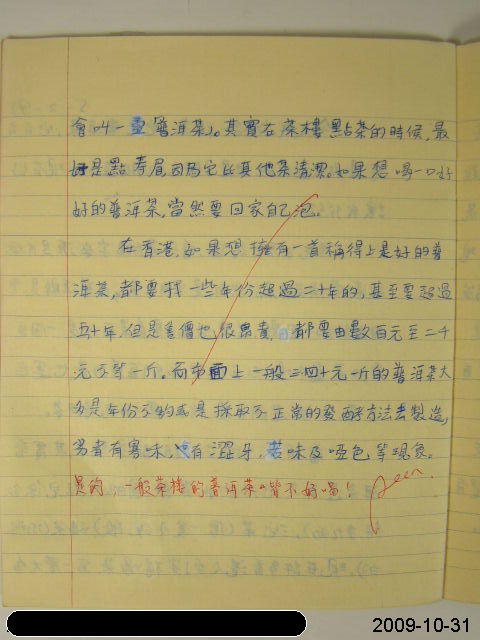 會叫一壼「普洱茶」。其實在茶樓點茶的時候,最
好是點壽眉,因為它比其他茶清潔。如果想喝一口好
好的普洱茶,當然要回家自己泡。
在香港,如果想擁有一首稱得上是好的普
洱茶,都要找一些年份超過二十年的,甚至要超過
五十年,但是售價也很昂貴,都要由數百元至二千
元不等一斤。而市面上一般三四十元一斤的普洱茶大
多是年份不夠或是採取不正常的發酵方法去製造,
劣者有霉味,有澀牙、苦味及啞色等現象。
真的,一般茶樓的普洱茶皆不好喝!
Seen
2009-10-31